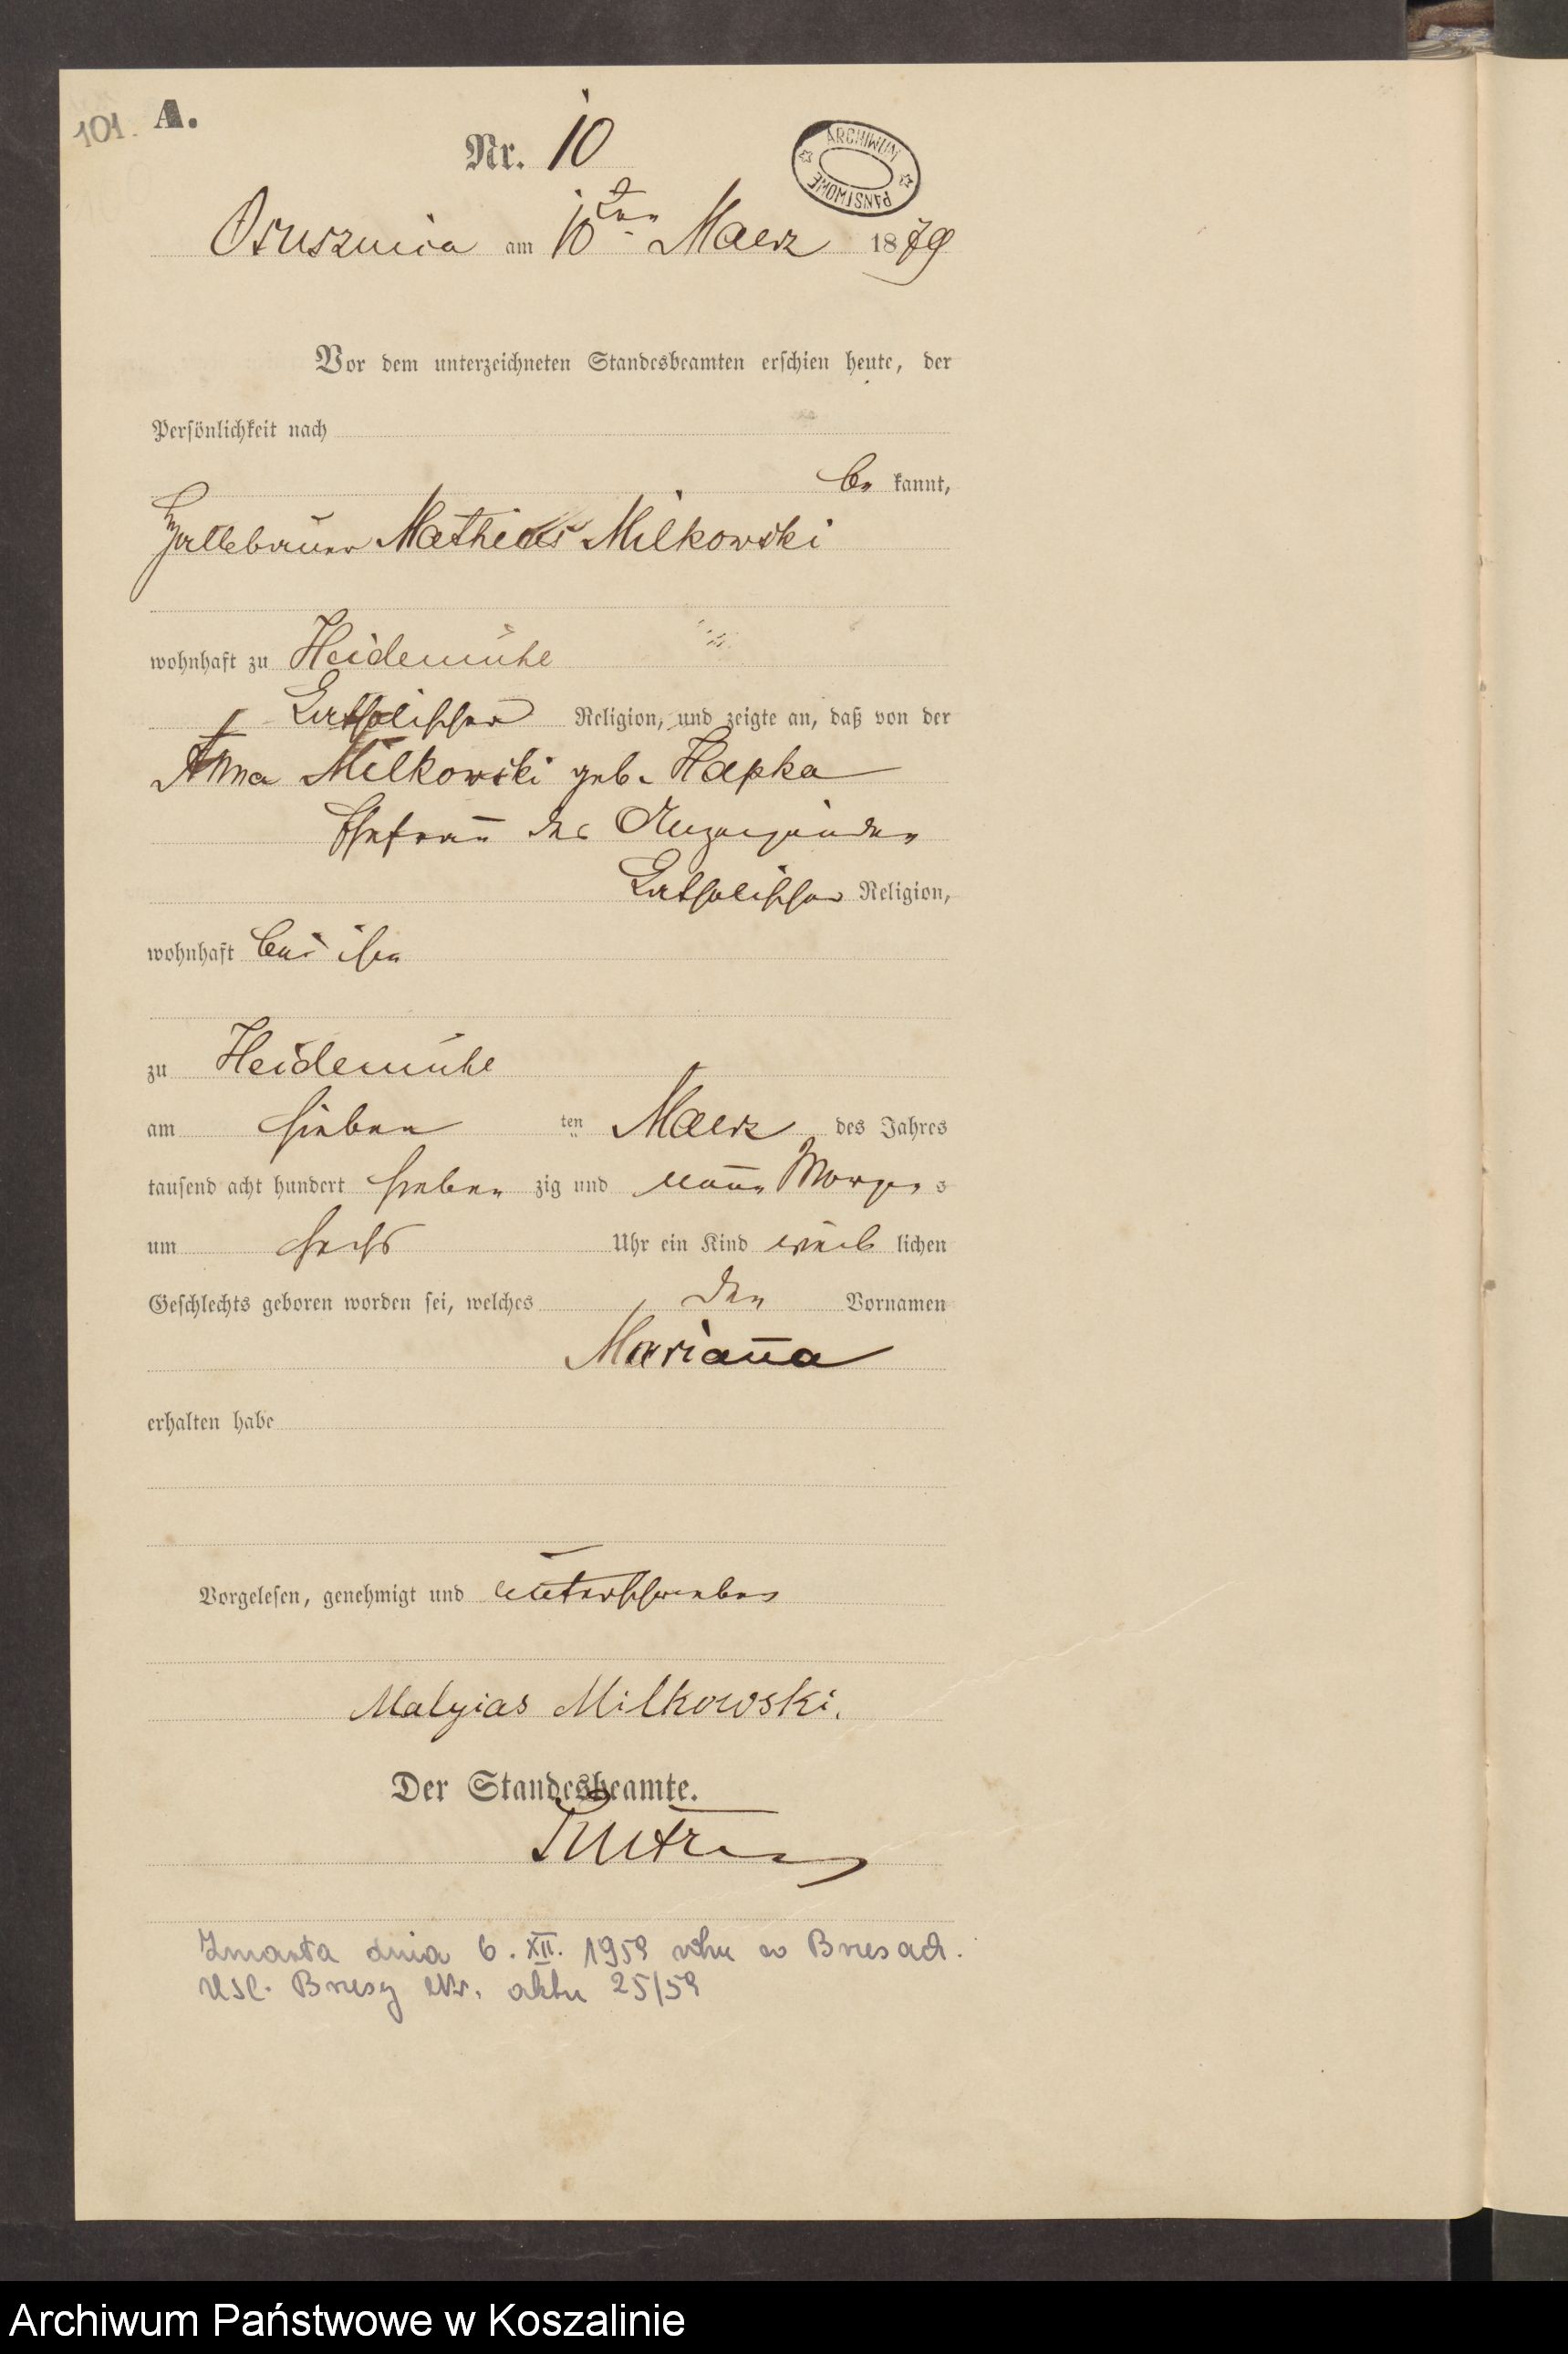 101. A.
Nr. 10
ARCHIWUM PAŃSTWOWE
Osusznica am 10ten Maerz 1879
Vor dem unterzeichneten Standesbeamten erschien heute, der
Persönlichkeit nach
be kannt,
Mathias Milkowski
wohnhaft zu Heidemühle
Katholischer Religion, und zeigte an, daß von der
Anna Milkowski geb. Hapka
Ehefrau des Anzeigenden
Katholischer Religion,
wohnhaft bei ihm
zu Heidemühle
am sieben ten Maerz des Jahres
tausend acht hundert sieben zig und neun Morgens
um sechs Uhr ein Kind weib lichen
Geschlechts geboren worden sei, welches den Vornamen
Marian̄a
erhalten habe
Vorgelesen, genehmigt und unterschrieben
Matyias Milkowski.
Der Standesbeamte.
Zmarła dnia 6. XII. 1959 roku w Brusach.
USC. Brusy Nr. aktu 25/59
Archiwum Państwowe w Koszalinie